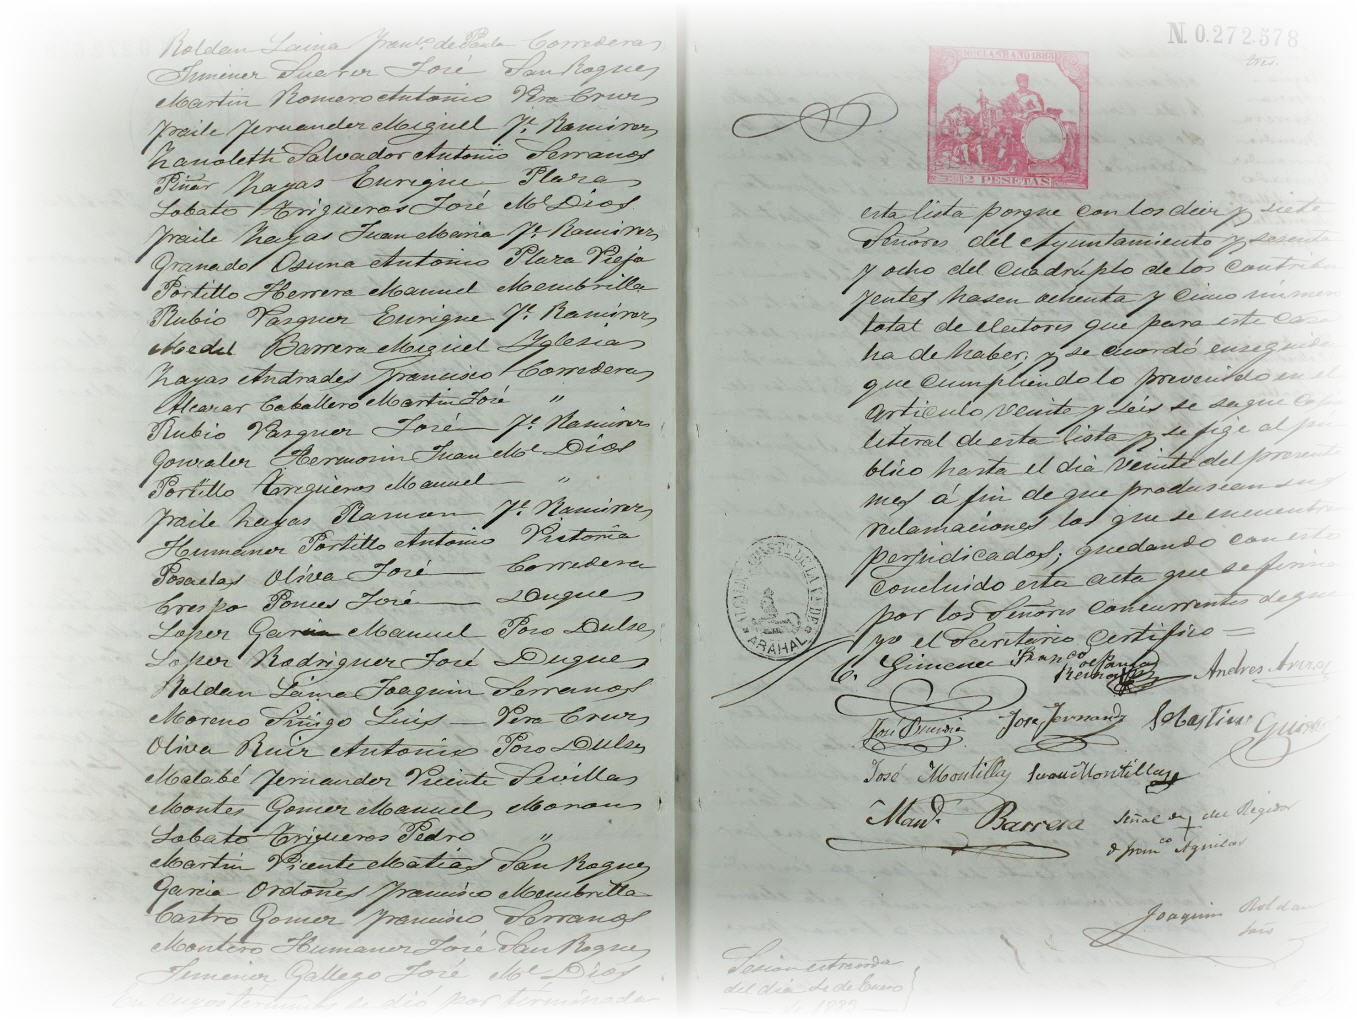 Roldan Laina Franco. de Paula Correderas
Jimenez Suarez José San Roque
Martin Romero Antonio Vera Cruz
Fraile Fernandez Miguel Fo. Ramirez
Zanoletti Salvador Antonio Serranos
Piñar Zayas Enrique Plaza
Lobato Trigueros José Me. Dios
Fraile Zayas Juan Maria Fo. Ramirez
Granado Osuna Antonio Plaza Vieja
Portillo Herrera Manuel Membrilla
Rubio Vazquez Enrique Fo. Ramirez
Medel Barrera Miguel Yglesia
Zayas Andrades Francisco Corredera
Alcazar Caballero Martin José "
Rubio Vazquez José Fo. Ramirez
Gonzalez Hermosin Juan Me. Dios
Portillo Trigueros Manuel "
Fraile Zayas Ramon Fo. Ramirez
Humanez Portillo Antonio Victoria
Posadas Oliva José Corredera
Crespo Ponces José Duque
Lopez Garcia Manuel Pozo Dulce
Lopez Rodriguez José Duque
Roldan Laina Joaquin Serranos
Moreno Luis Vera Cruz
Oliva Ruiz Antonio Pozo Dulse
Malabé Fernandez Vicente Sevilla
Montes Gomez Manuel Moron
Lobato Trigueros Pedro "
Martin Vicente Matias San Roque
Garcia Ordoñes Francisco Membrilla
Castro Gomez Francisco Serranos
Montero Humanez José San Roque
Jimenez Gallego José Me. Dios
En cuyos términos se dió por terminada
N. 0.272.578
tres.
CLASE AÑO 1883
2 PESETAS
esta lista porque con los diez y siete
Señores del Ayuntamiento y sesenta
y ocho del cuadrúplo de los contribu
yentes hasen ochenta y cinco número
total de electores que para este caso
ha de haber; y se acordó enseguida
que cumpliendo lo prevenido en el
artículo veinte y seis se saque copia
literal de esta lista y se fige al pú
blico hasta el dia veinte del presente
mes á fin de que produscan sus
reclamaciones los que se encuentren
perjudicados; quedando con esto
concluido esta acta que se firma
por los Señores concurrentes de que
yo el Secretario certifico =
ALCALDIA CONSTL. DE LA VA. DE
ARAHAL
C. Gimenez Franco. de Paula Andres Arias
José Fernandz Sebastian
José Montilla Juan Montilla
Manl. Barrera Señal de + del Regidor
D. Franco. Aguilar
Joaquin Roldan
Sesion estraorda
del dia de Enero
de 1883